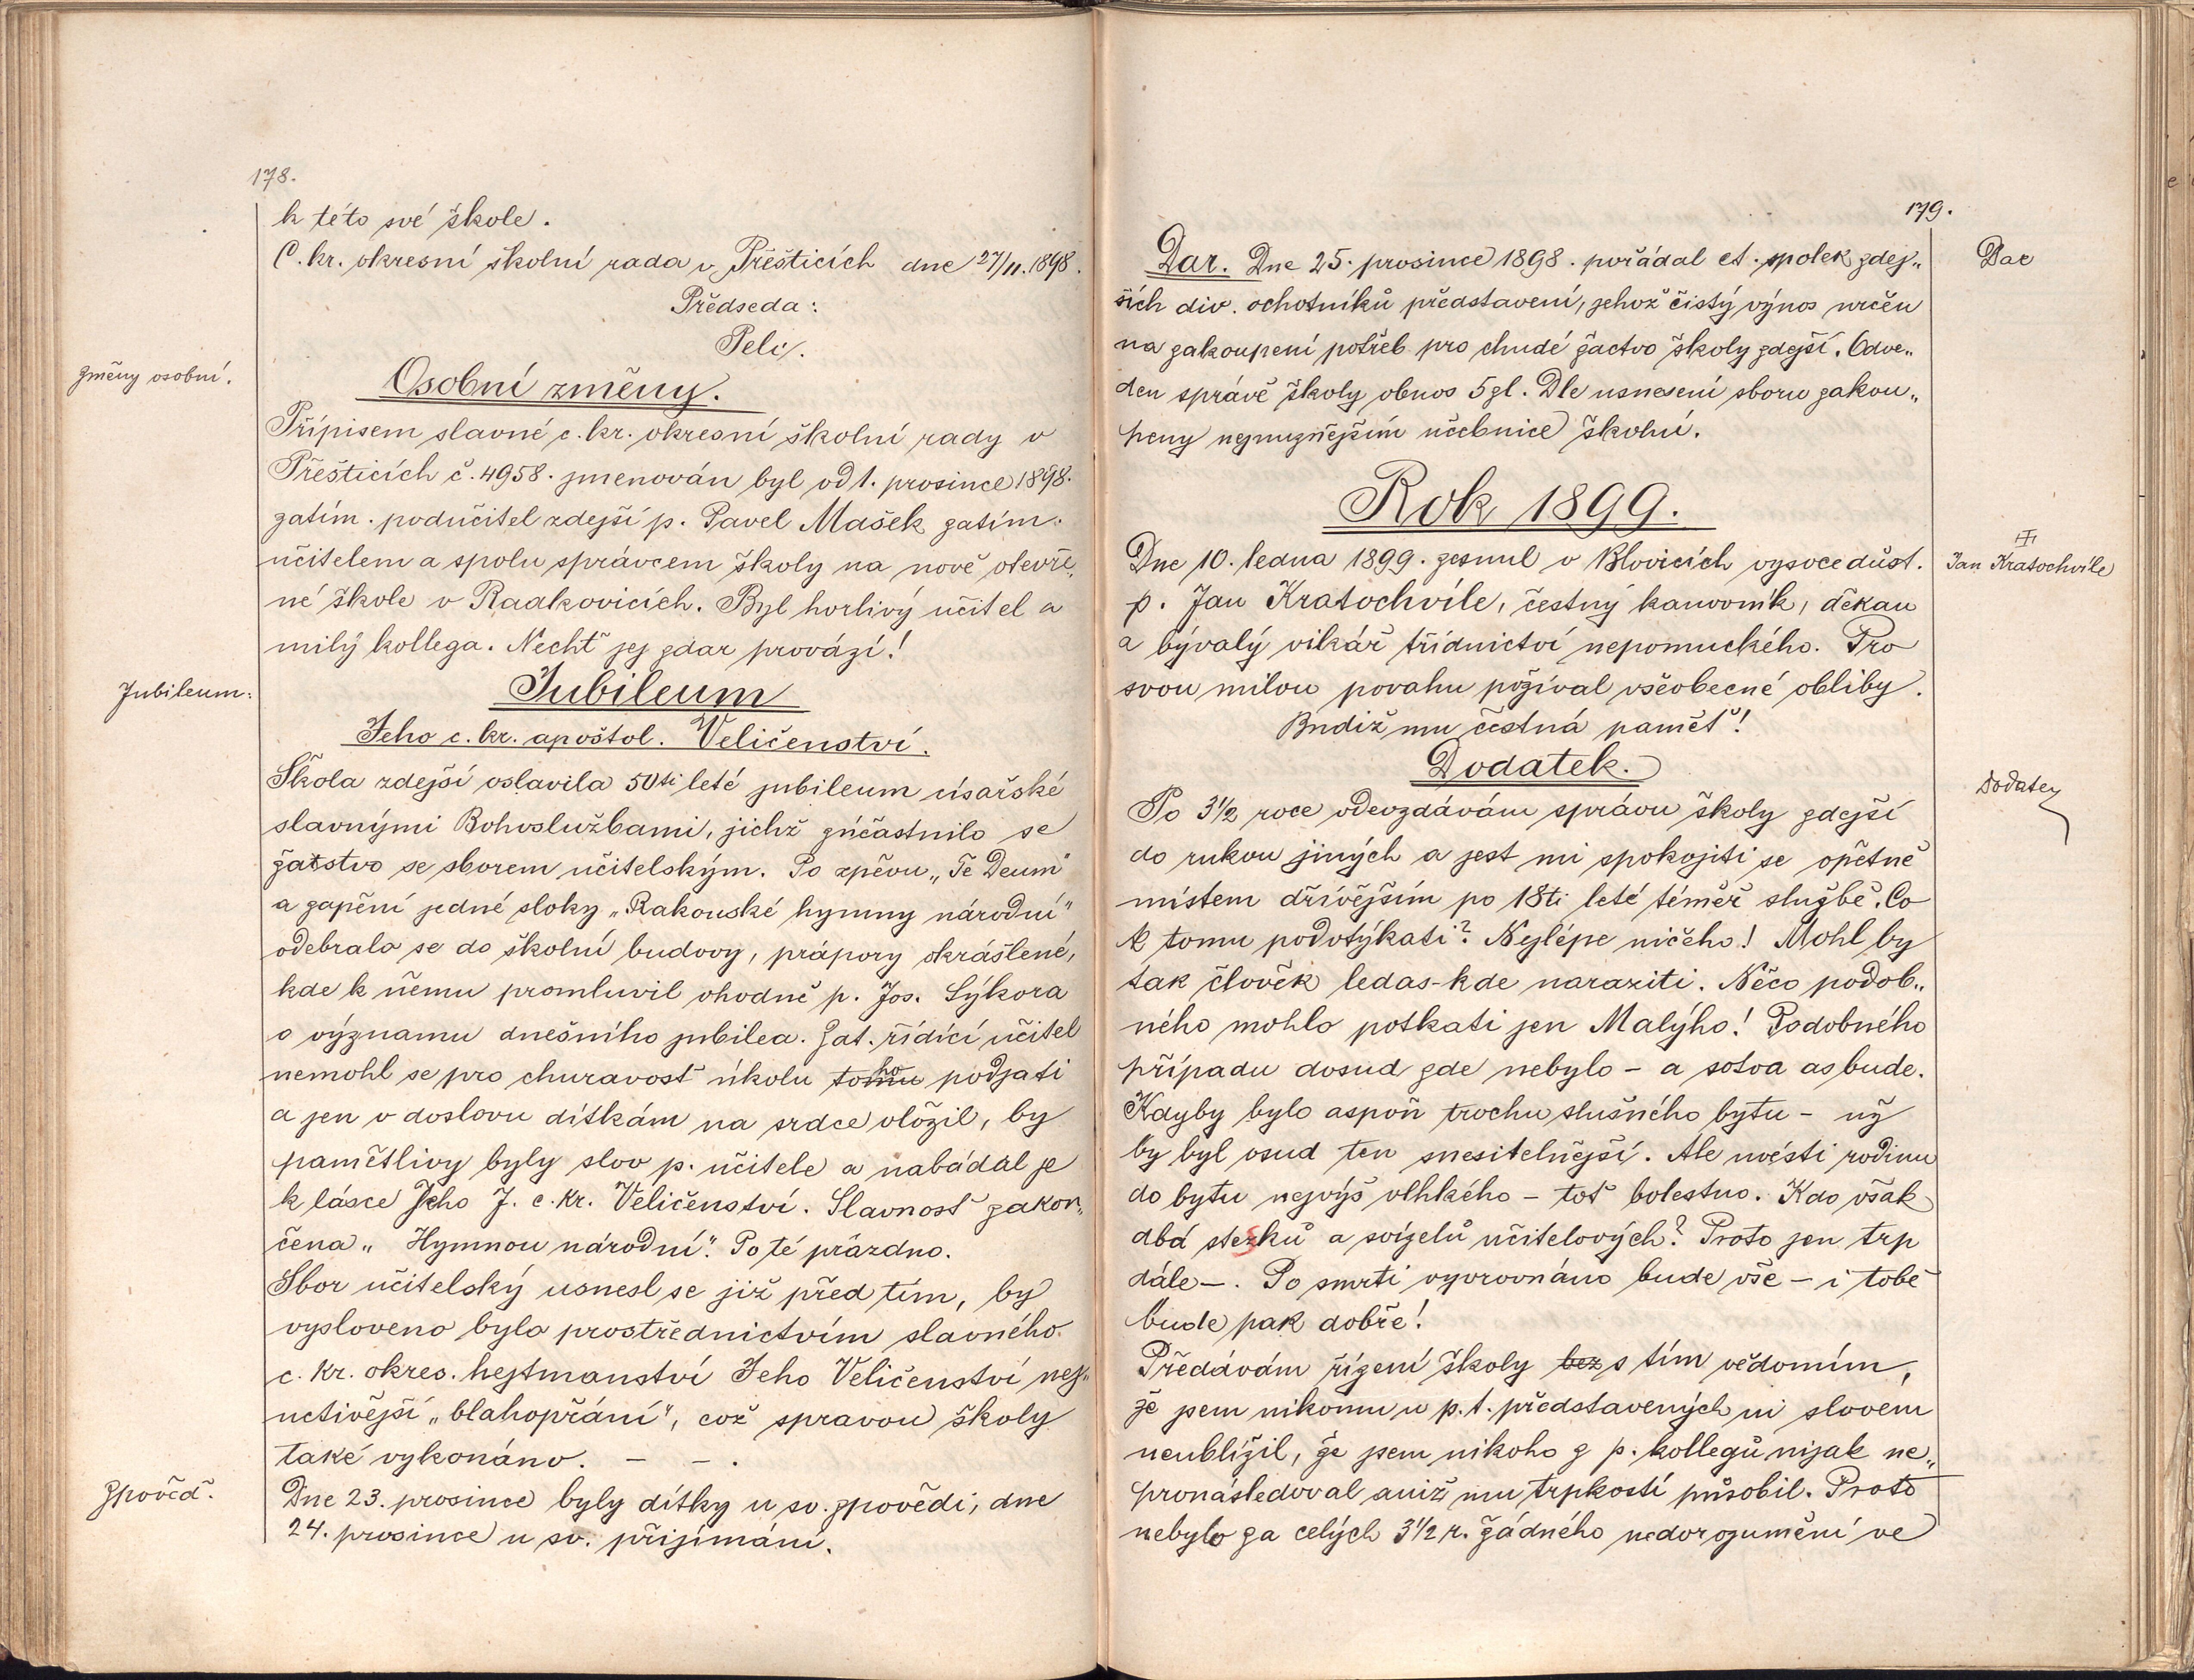 178.
k této své škole.
C. kr. okresní školní rada v Přešticích dne 27/11. 1898.
Předseda:
Pelc.
Změny osobní.
Osobní změny.
Přípisem slavné c. kr. okresní školní rady v
Přešticích č. 4958. jmenován byl od 1. prosince 1898.
zatím. podučitel zdejší p. Pavel Mašek zatím.
učitelem a spolu správcem školy na nově otevře„
né škole v Radkovicích. Byl horlivý učitel a
milý kollega. Nechť jej zdar provází!
Jubileum:
Jubileum
Jeho c. kr. apoštol. Veličenství.
Škola zdejší oslavila 50ti leté jubileum císařské
slavnými Bohoslužbami, jichž zúčastnilo se
žatstvo se sborem učitelským. Po zpěvu „Te Deum"
a zapění jedné sloky „Rakouské hymny národní"
odebralo se do školní budovy, prápory okrášlené,
kde k němu promluvil vhodně p. Jos. Sýkora
o významu dnešního jubilea. Zat. řídící učitel
nemohl se pro churavosť úkolu tomu ho podjati
a jen v doslovu dítkám na srdce vložil, by
pamětlivy byly slov p. učitele a nabádal je
k lásce Jeho J. c. kr. Veličenství. Slavnosť zakon„
čena „Hymnou národní". Po té prázdno.
Sbor učitelský usnesl se již před tím, by
vysloveno bylo prostřednictvím slavného
c. kr. okres. hejtmanství Jeho Veličenství nej„
uctivější „blahopřání", což spravou školy
také vykonáno. – – .
Zpověď.
Dne 23. prosince byly dítky u sv. zpovědi, dne
24. prosince u sv. přijímání.
179.
Dar
Dar. Dne 25. prosince 1898. pořádal ct. spolek zdej„
ších div. ochotníků představení, jehož čistý výnos určen
na zakoupení potřeb pro chudé žactvo školy zdejší. Odve„
den správě školy obnos 5 zl. Dle usnesení sboru zakou„
peny nejnuznějším učebnice školní.
Rok 1899.
Jan Kratochvíle
Dne 10. ledna 1899. zesnul v Blovicích vysoce důst.
p. Jan Kratochvíle, čestný kanovník, děkan
a bývalý vikář třídnictví nepomuckého. Pro
svou milou povahu požíval všeobecné obliby.
Budiž mu čestná paměť!
Dodatek
Dodatek.
Po 3½ roce odevzdávám správu školy zdejší
do rukou jiných a jest mi spokojiti se opětně
místem dřívějším po 18ti leté téměř službě. Co
k tomu podotýkati? Nejlépe ničeho! Mohl by
tak člověk ledas-kde naraziti. Něco podob„
ného mohlo potkati jen Malýho! Podobného
případu dosud zde nebylo – a sotva as bude.
Kdyby bylo aspoň trochu slušného bytu – už
by byl osud ten snesitelnější. Ale uvésti rodinu
do bytu nejvýš vlhkého – toť bolestno. Kdo však
dbá stezků a svízelů učitelových? Proto jen trp
dále –. Po smrti vyrovnáno bude vše – i tobě
bude pak dobře!
Předávám řízení školy bez s tím vědomím,
že jsem nikomu u p. t. představených ni slovem
neublížil, že jsem nikoho z p. kollegů nijak ne„
pronásledoval aniž mu trpkostí působil. Proto
nebylo za celých 3½ r. žádného nedorozumění ve